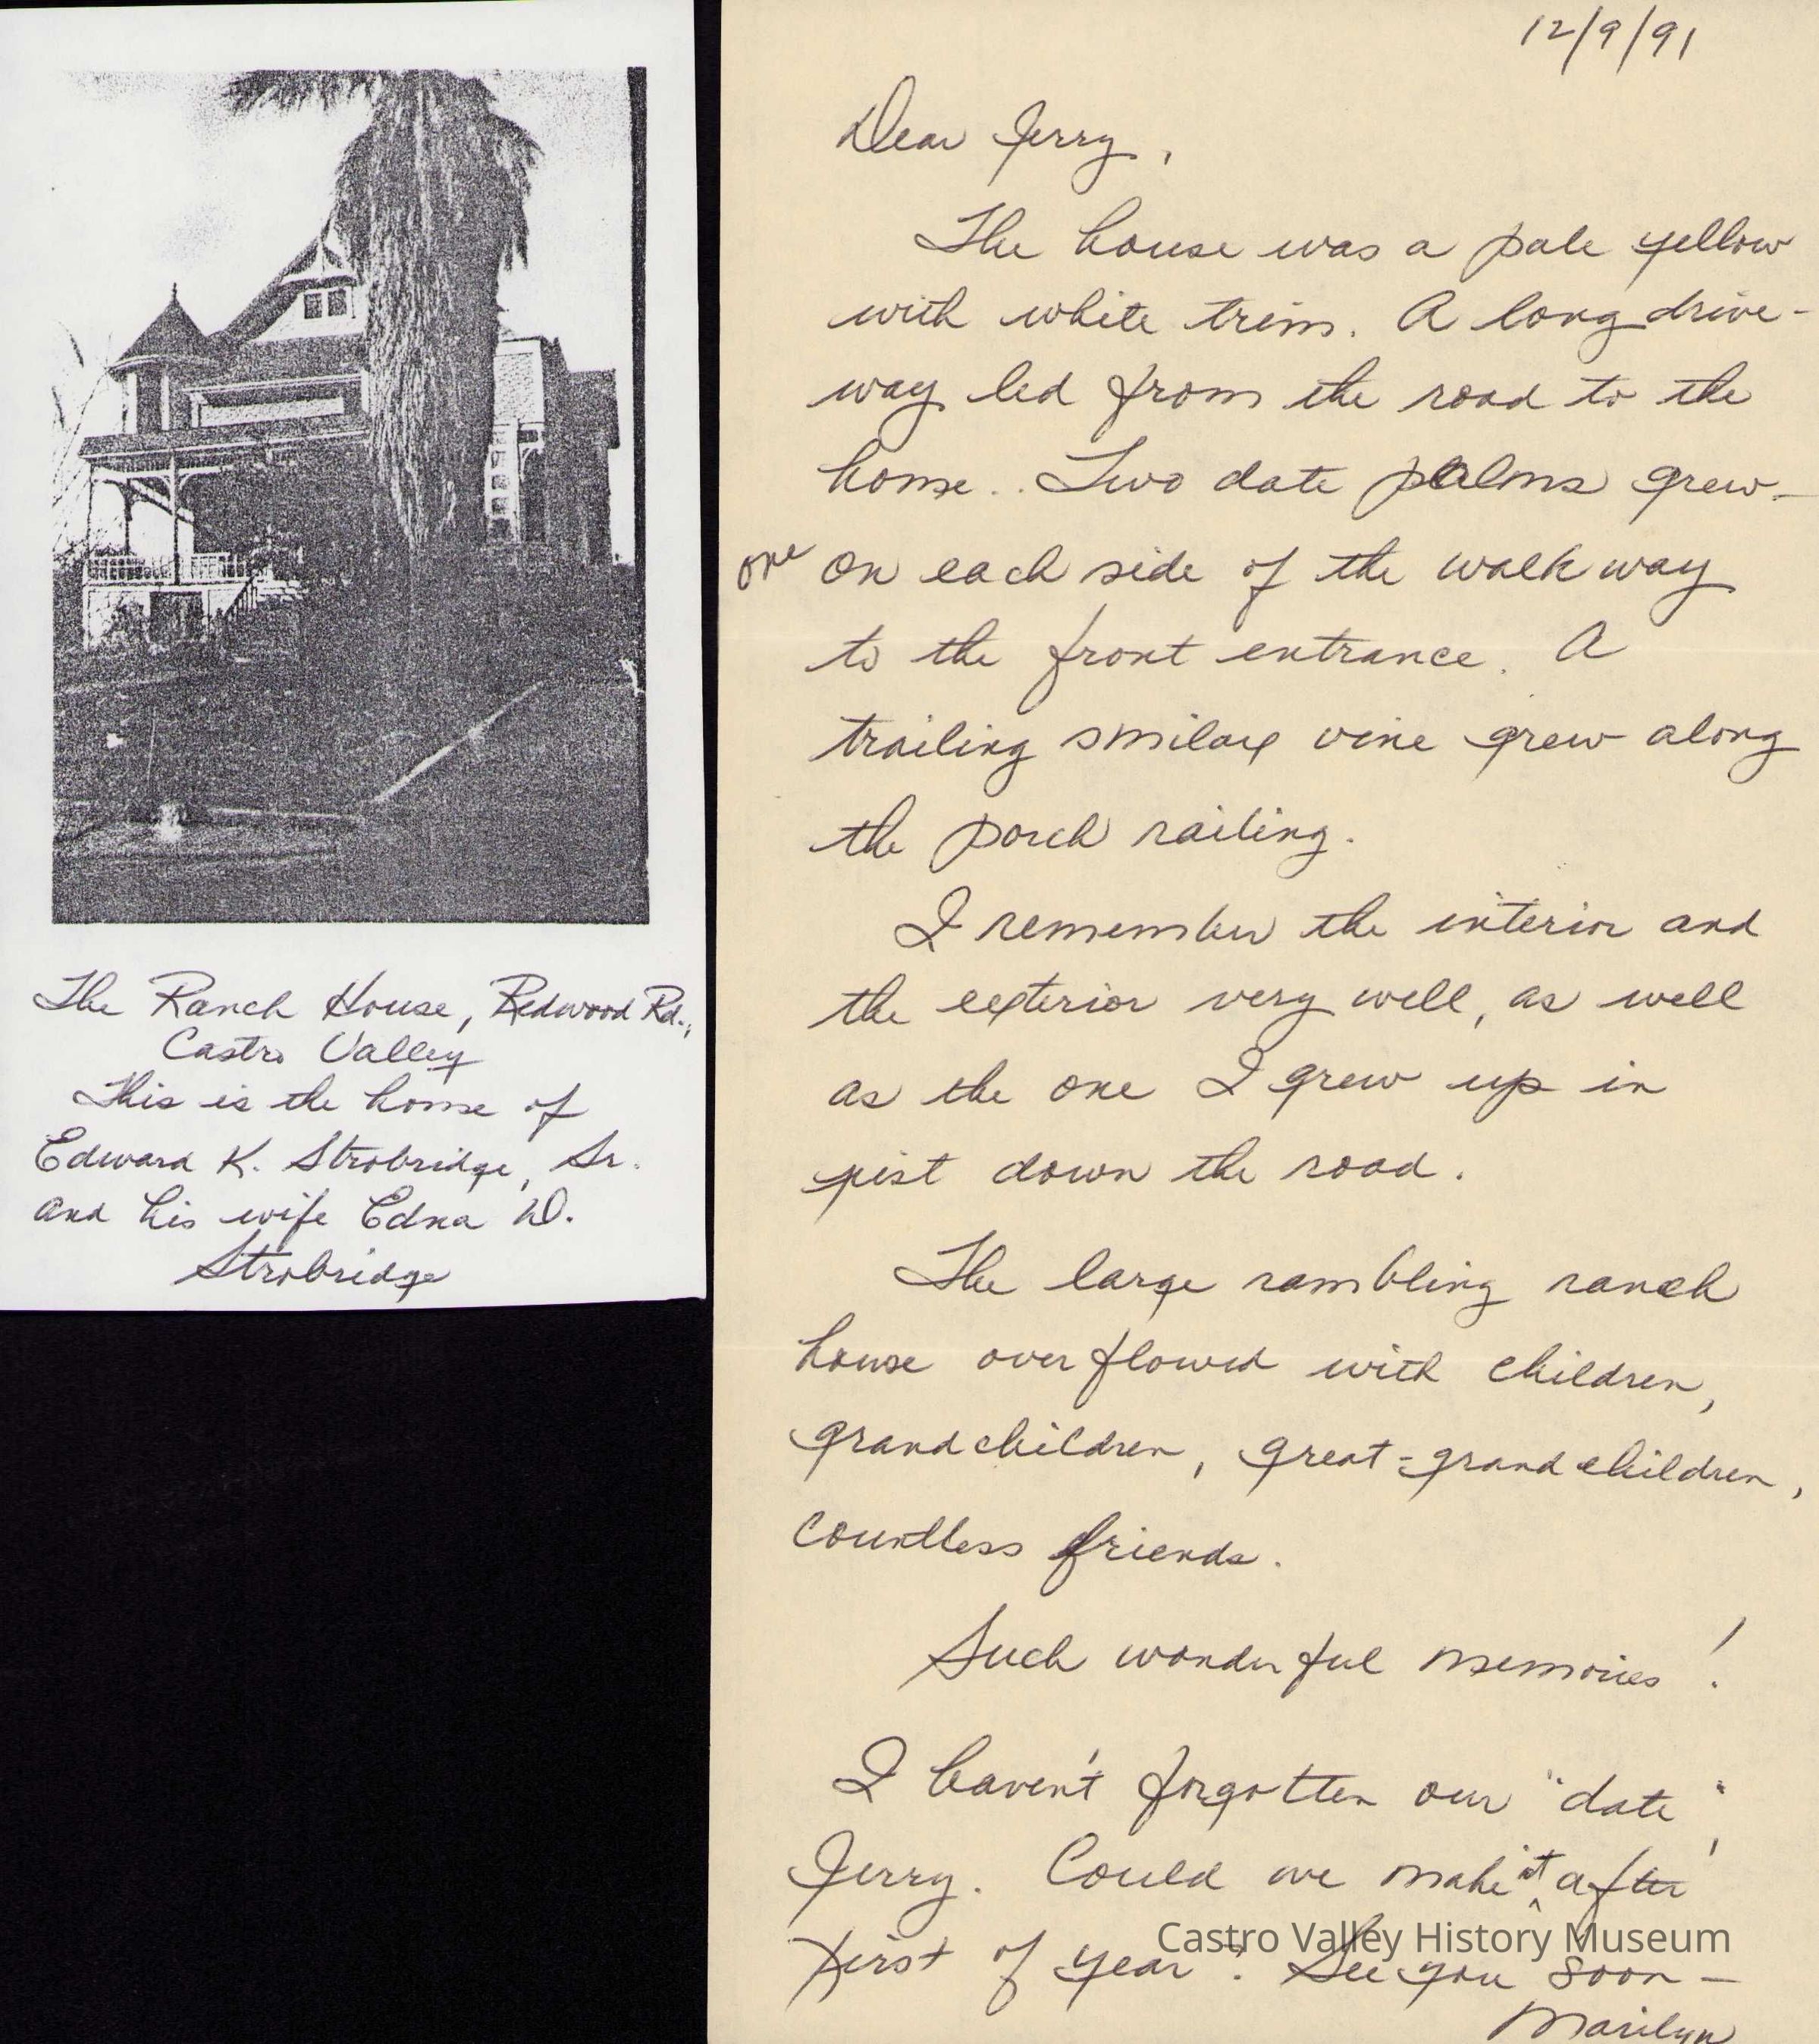 The Ranch House, Redwood Rd.,
Castro Valley
This is the home of
Edward K. Strobridge, Sr.
and his wife Edna D.
Strobridge
12/9/91
Dear Jerry,
The house was a pale yellow
with white trim. A long drive-
way led from the road to the
home.. Two date palms grew -
one on each side of the walk way
to the front entrance. A
trailing smilax vine grew along
the porch railing.
I remember the interior and
the exterior very well, as well
as the one I grew up in
just down the road.
The large rambling ranch
house overflowed with children,
grandchildren, great-grandchildren,
countless friends.
Such wonderful memories!
I haven't forgotten our "date",
Jerry. Could we make it after
first of year? See you soon -
Marilyn
Castro Valley History Museum